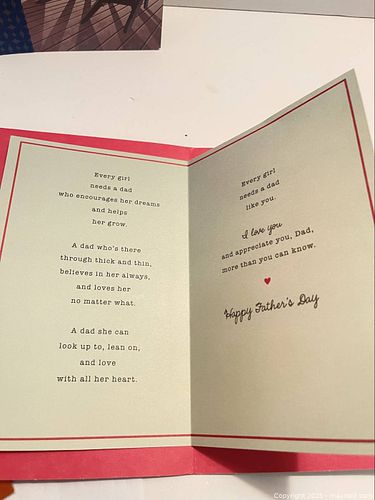 Every girl
needs a dad
who encourages her dreams
and helps
her grow.
A dad who's there
through thick and thin,
believes in her always,
and loves her
no matter what.
A dad she can
look up to, lean on,
and love
with all her heart.
Every girl
needs a dad
like you.
I love you
and appreciate you, Dad,
more than you can know.
Happy Father's Day